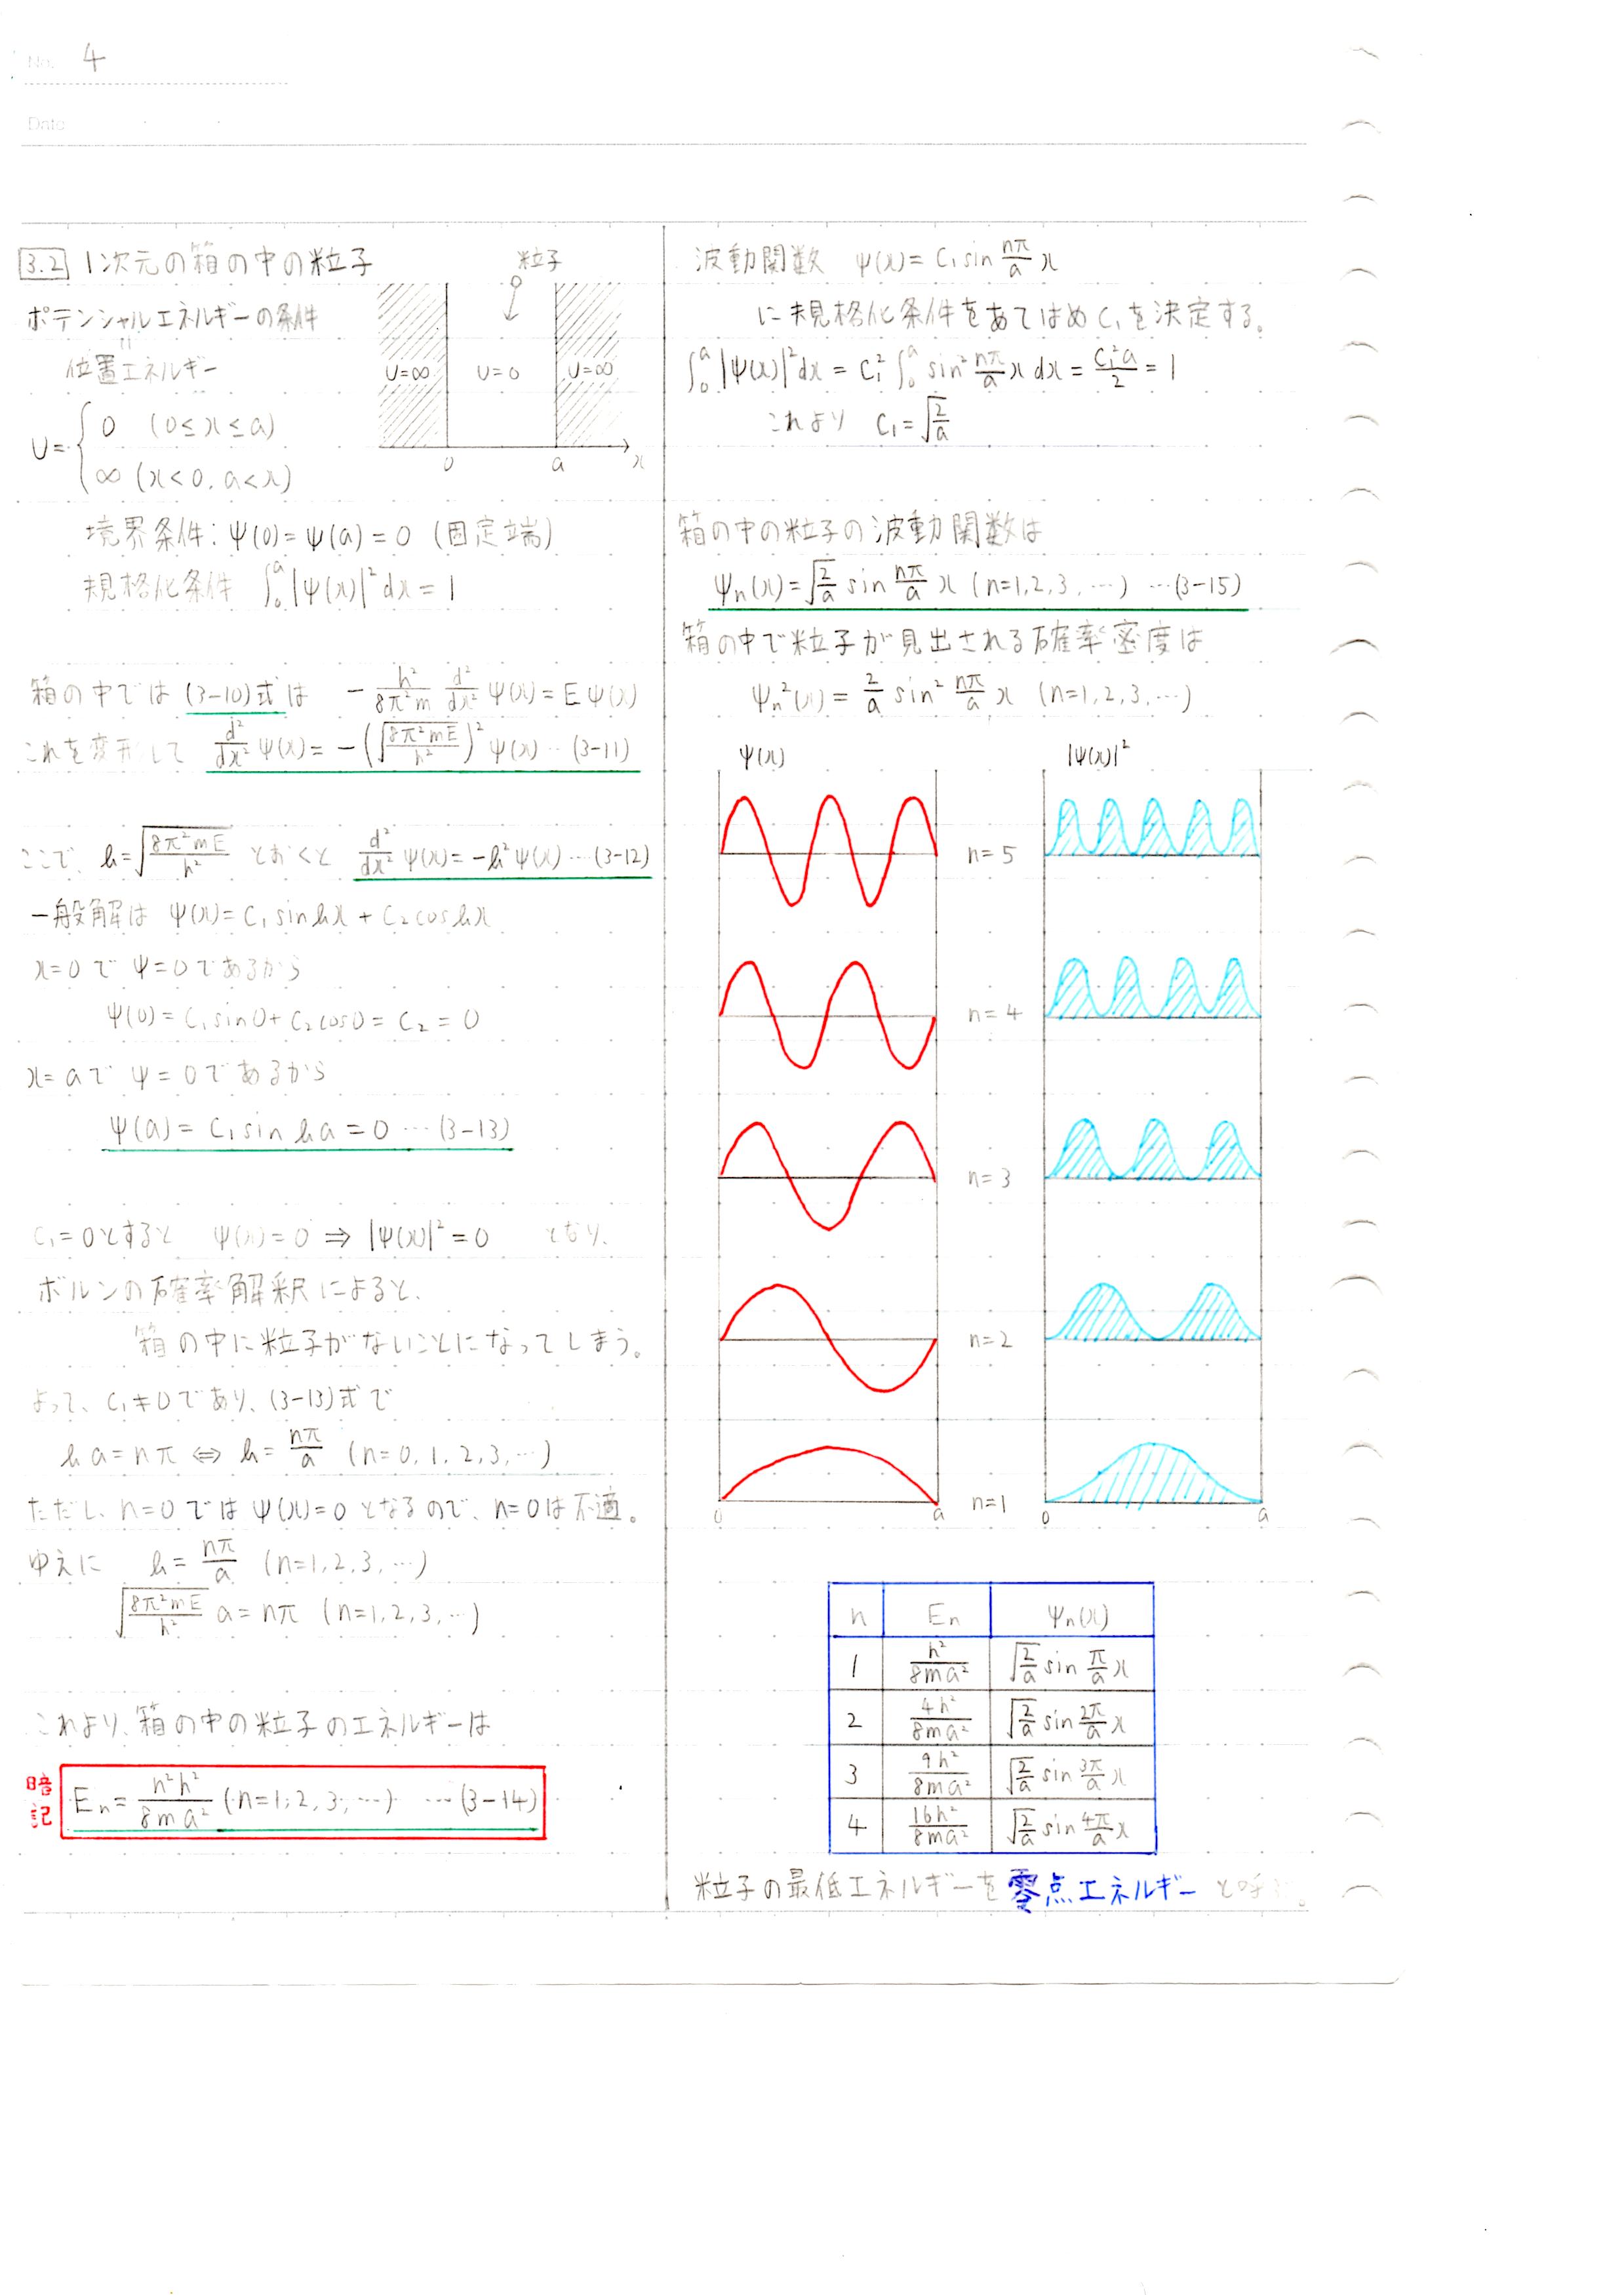 No. 4
Date
3.2 1次元の箱の中の粒子
ポテンシャルエネルギーの条件
=
位置エネルギー
U= { 0 (0≤x≤a)
∞ (x<0, a<x)
粒子
U=∞ U=0 U=∞
0 a x
境界条件: ψ(0)=ψ(a)=0 (固定端)
規格化条件 ∫₀ᵃ|ψ(x)|²dx=1
箱の中では (3-10)式は -h²/8π²m d²/dx² ψ(x)=Eψ(x)
これを変形して d²/dx² ψ(x)=-(√(8π²mE/h²))² ψ(x)…(3-11)
ここで、k=√(8π²mE/h²) とおくと d²/dx² ψ(x)=-k²ψ(x)…(3-12)
一般解は ψ(x)=C₁sinkx+C₂coskx
x=0で ψ=0であるから
ψ(0)=C₁sin0+C₂cos0=C₂=0
x=aで ψ=0であるから
ψ(a)=C₁sin ka=0…(3-13)
C₁=0とすると ψ(x)=0 ⇒ |ψ(x)|²=0 となり、
ボルンの確率解釈によると、
箱の中に粒子がないことになってしまう。
よって、C₁≠0であり、(3-13)式で
ka=nπ ⇔ k=nπ/a (n=0,1,2,3,…)
ただし、n=0では ψ(x)=0 となるので、n=0は不適。
ゆえに k=nπ/a (n=1,2,3,…)
√(8π²mE/h²) a=nπ (n=1,2,3,…)
これより、箱の中の粒子のエネルギーは
暗記
En=n²h²/8ma² (n=1,2,3,…) …(3-14)
波動関数 ψ(x)=C₁sin nπ/a x
に規格化条件をあてはめC₁を決定する。
∫₀ᵃ|ψ(x)|²dx=C₁²∫₀ᵃ sin² nπ/a x dx=C₁²a/2=1
これより C₁=√(2/a)
箱の中の粒子の波動関数は
ψn(x)=√(2/a) sin nπ/a x (n=1,2,3,…) …(3-15)
箱の中で粒子が見出される確率密度は
ψn²(x)=2/a sin² nπ/a x (n=1,2,3,…)
ψ(x) |ψ(x)|²
n=5
n=4
n=3
n=2
n=1
0 a 0 a
n En ψn(x)
1 h²/8ma² √(2/a) sin π/a x
2 4h²/8ma² √(2/a) sin 2π/a x
3 9h²/8ma² √(2/a) sin 3π/a x
4 16h²/8ma² √(2/a) sin 4π/a x
粒子の最低エネルギーを零点エネルギーと呼ぶ。